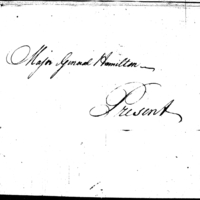 Major General Hamilton
Present